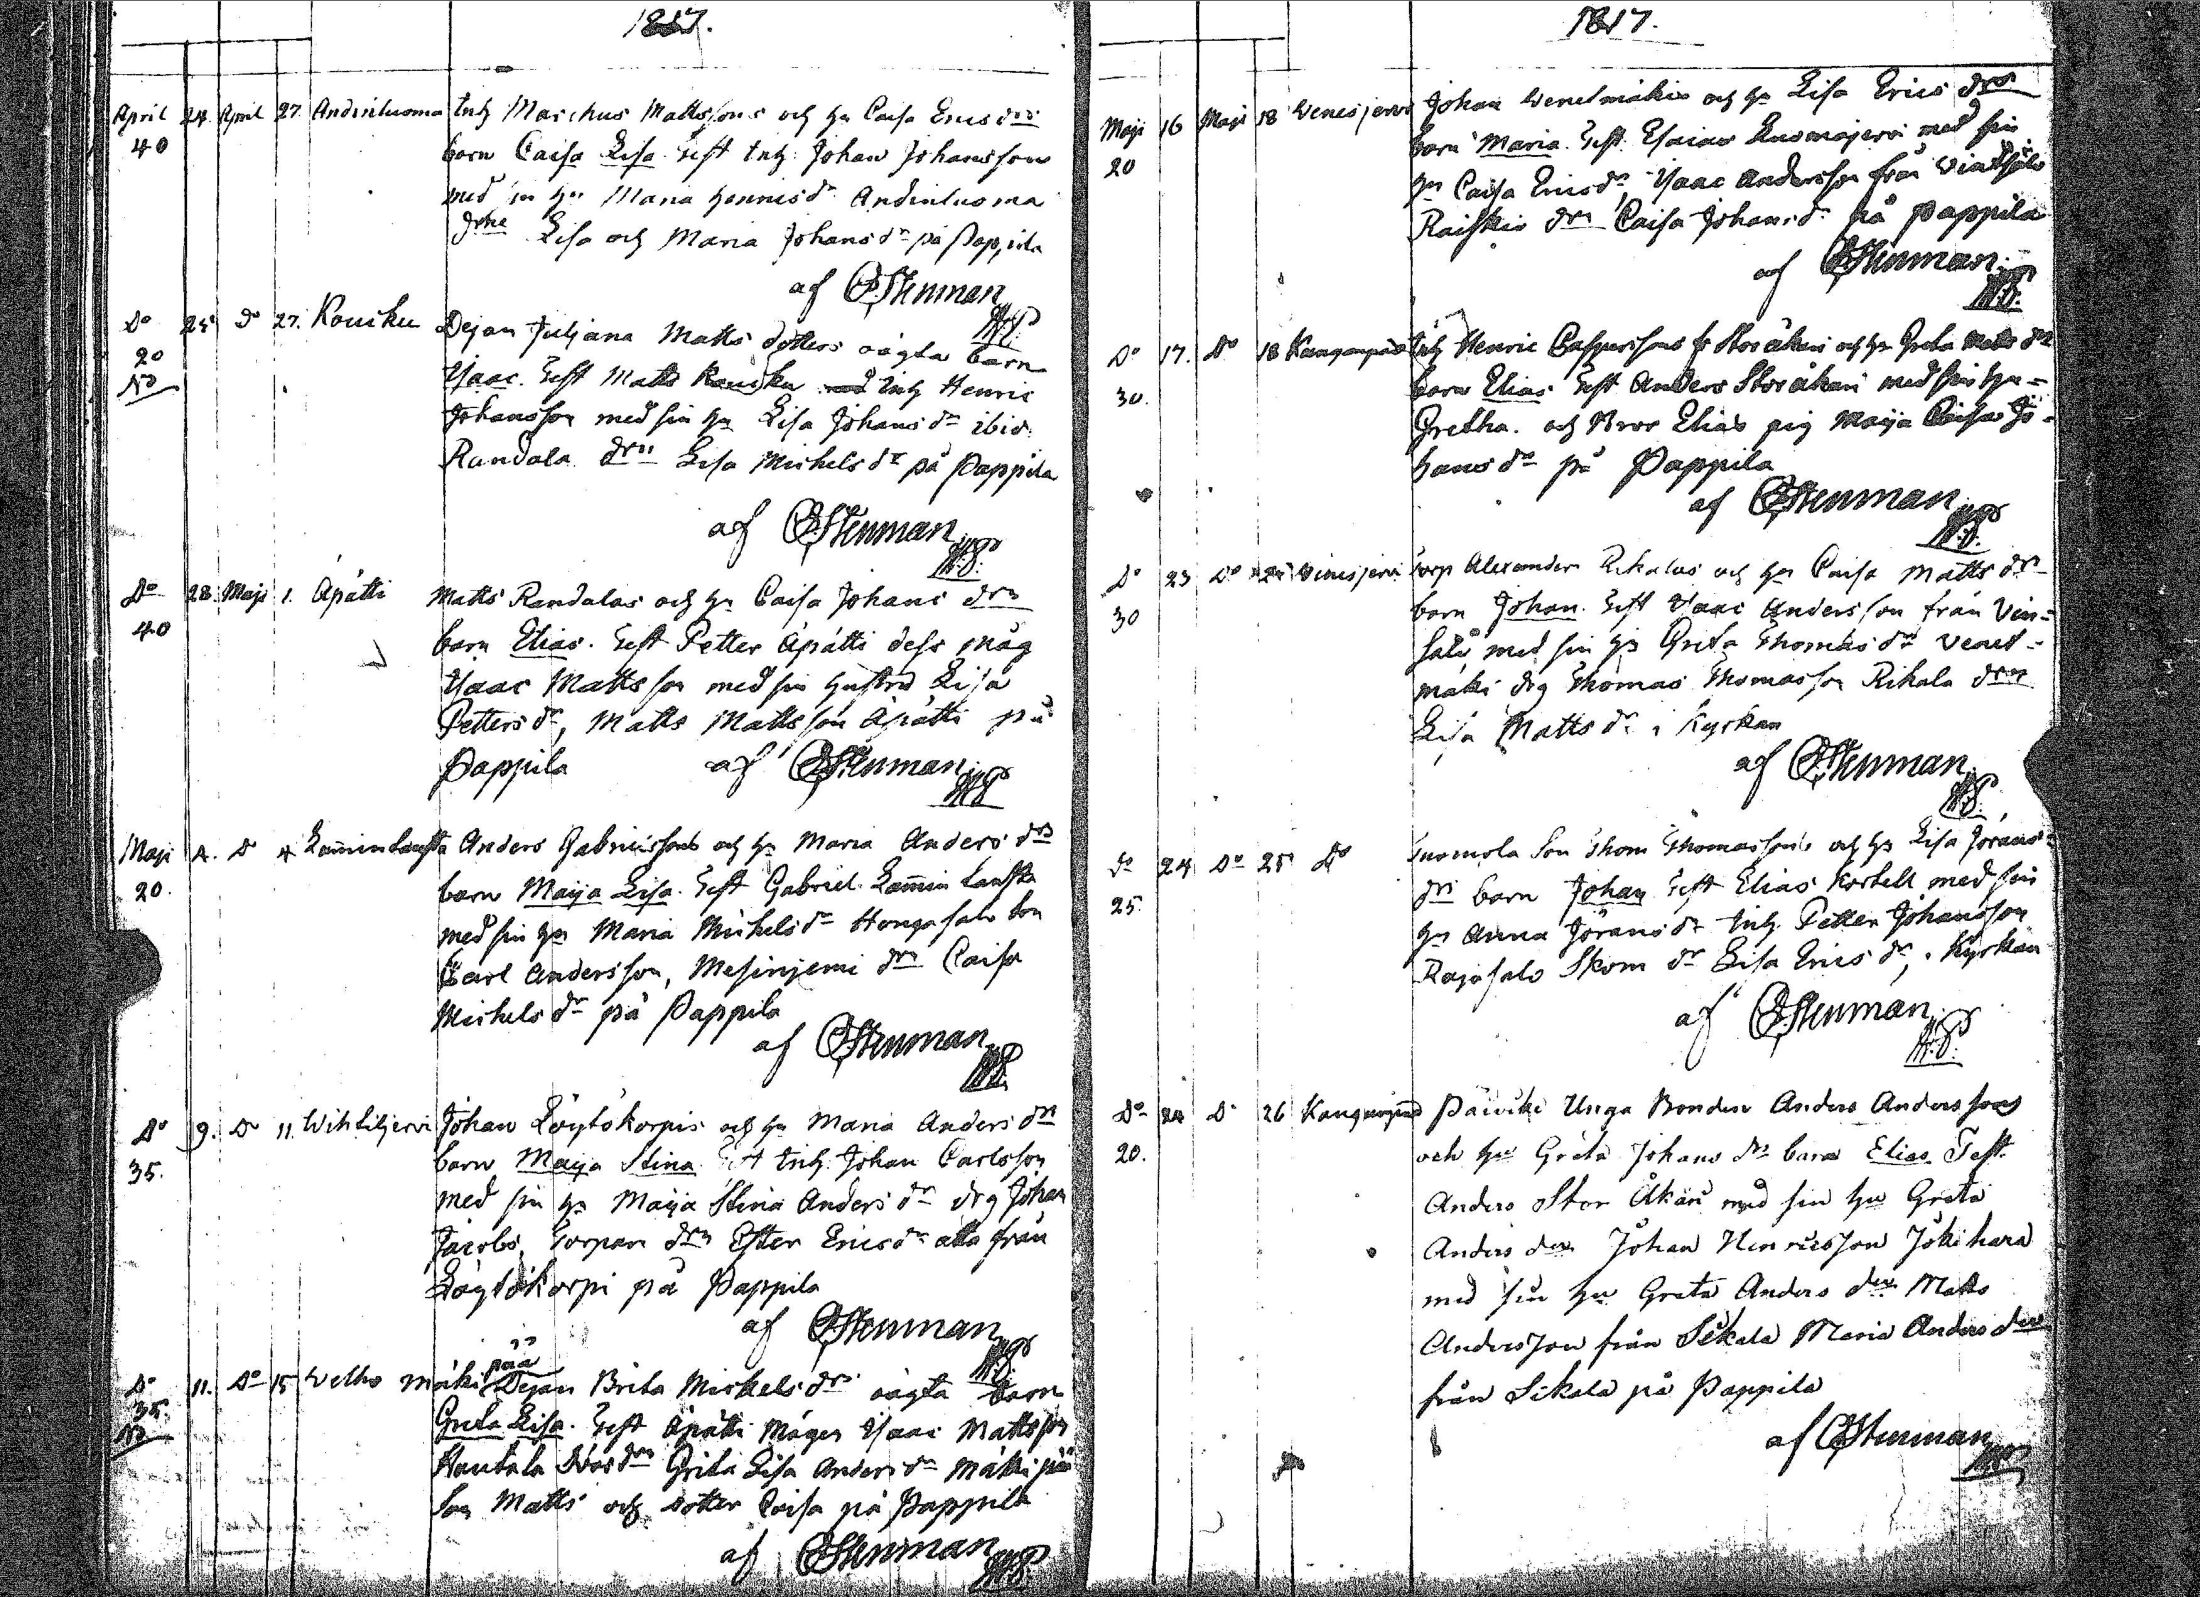 1817.
April 24. April 27. Andinluoma Inh Marchus Mattssons och hu Caisa Erics drs
40 barn Caisa Lisa. Test Inh. Johan Johansson
med sin hu Maria Hennis dr Andinluoma
drne Lisa och Maria Johans dr på Pappila
af Stenman
Do 25 Do 27. Koucku Dejan Juljana Matts dotters oägta barn
20 Isaac. Test Matts Koucku Inh Henric
No Johansson med sin hu Lisa Johans dr ibid.
Randala drn Lisa Michels dr på Pappila
af Stenman
Do 28. Maji 1. Äpätti Matts Randalas och hu Caisa Johans drs
40 barn Elias. Test Petter Äpätti dess måg
Isaac Mattsson med sin hustru Lisa
Petters dr, Matts Mattsson Äpätti på
Pappila af Stenman
Maji 4. Do 4 Anders Gabrielssons och hu Maria Anders drs
20. barn Maija Lisa. Test Gabriel
med sin hu Maria Michels dr Hongasalo
Carl Andersson, Mesinjemi drn Caisa
Michels dr på Pappila
af Stenman
Do 9. Do 11. Wihtiljervi Johan Löytökorpis och hu Maria Anders drs
35. barn Maija Stina Test Inh. Johan Carlsson
med sin hu Maija Stina Anders dr drg Johan
Jacobs, Torpari drn Ester Erics dr alla från
Löytökorpi på Pappila
af Stenman
Do 11. Do 15 Welho mäkipää Dejan Brita Michels drs oägta barn
35. Greta Lisa. Test Äpätti Mågen Isaac Mattsson
No Hautala drn Greta Lisa Anders dr Mäkipää
Son Matts och dotter Caisa på Pappila
af Stenman
1817.
Maji 16 Maji 18 Wenesjervi Johan Wenetmäkis och hu Lisa Erics drs
20 barn Maria. Test. Esaias Kuomajervi med sin
hu Caisa Erics dr, Isaac Andersson från
Raiskio drn Caisa Johans dr på Pappila
af Stenman
Do 17. Do 18 Inh Henric Caspersons fr Storåkari och hu Greta Matts drs
30. barn Elias Test Anders Storåkari med sin hu
Gretha. och Bror Elias pig Maija Caisa Jo-
hans dr på Pappila
af Stenman
Do 23 Do 25 Wenesjervi Torp Alexander Rikalas och hu Caisa Matts drs
30 barn Johan. Test Isaac Andersson från Vin-
salo med sin hu Greta Thomas dr Venet-
mäki drg Thomas Thomasson Rikala drn
Lisa Matts dr i Kyrkan
af Stenman
Do 24 Do 25 Do Son Thom Thomassons och hu Lisa Jörans
25. drs barn Johan Test Elias Kortell med sin
hu Anna Jörans dr Inh. Petter Johansson
Rajasalo Skom dr Lisa Erics dr, i Kyrkan
af Stenman
Do 24 Do 26 Päiviki Unga Bonden Anders Anderssons
20. och hu Greta Johans drs barn Elias Test.
Anders Stor Åkari med sin hu Greta
Anders dr Johan Henricsson Jokihara
med sin hu Greta Anders dr Matts
Andersson från Sikala Maria Anders dr
från Sikala på Pappila
af Stenman